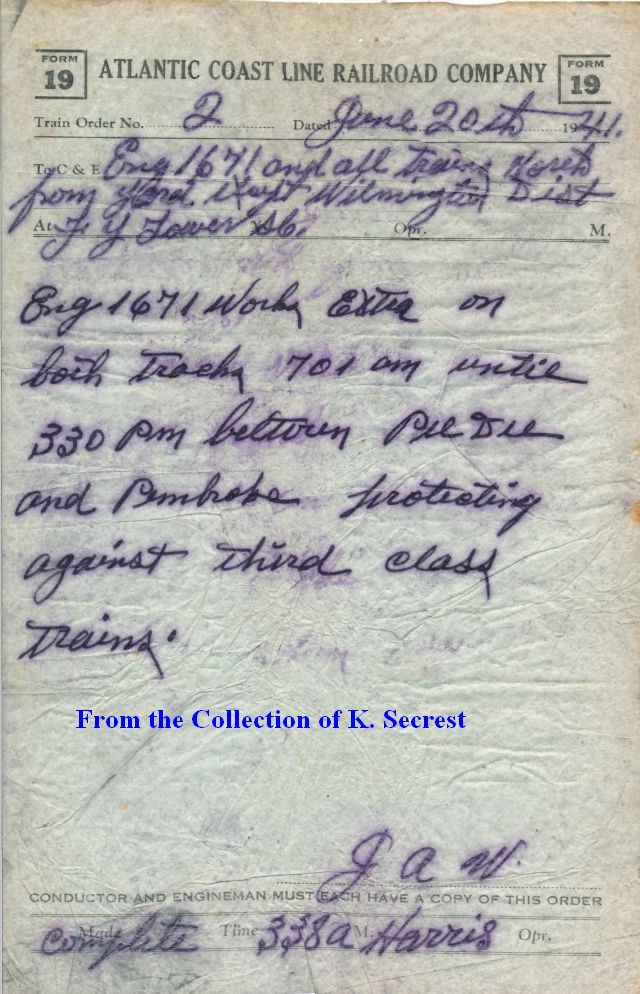 FORM 19 ATLANTIC COAST LINE RAILROAD COMPANY FORM 19
Train Order No. 2 Dated June 20th 1941.
To C & E Eng 1671 and all trains North
from Yard Except Wilmington Dist
At F Y Tower Opr. M.
Eng 1671 Works Extra on
both tracks 701 am until
330 Pm between Pee Dee
and Pembroke protecting
against third class
trains.
From the Collection of K. Secrest
J A W.
CONDUCTOR AND ENGINEMAN MUST EACH HAVE A COPY OF THIS ORDER
Made complete Time 338 a M. Harris Opr.